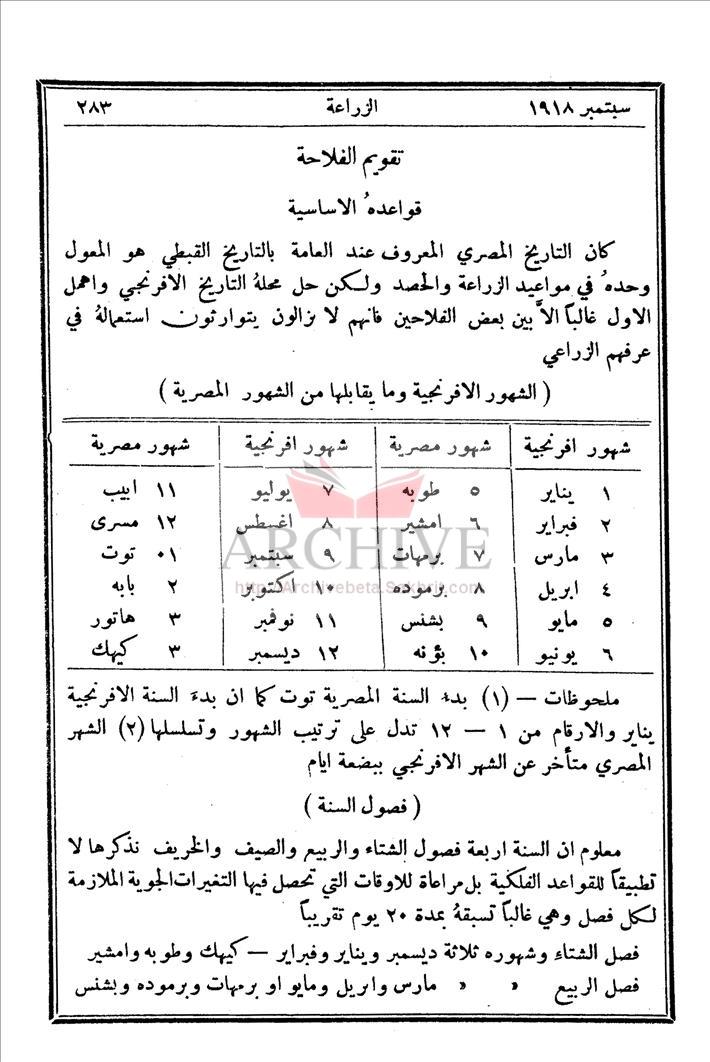 سبتمبر ١٩١٨ الزراعة ٢٨٣
تقويم الفلاحة
قواعدهُ الاساسية
كان التاريخ المصري المعروف عند العامة بالتاريخ القبطي هو المعول
وحدهُ في مواعيد الزراعة والحصد ولكن حل محلهُ التاريخ الافرنجي واهمل
الاول غالباً الاَّ بين بعض الفلاحين فانهم لا يزالون يتوارثون استعمالهُ في
عرفهم الزراعي
( الشهور الافرنجية وما يقابلها من الشهور المصرية )
شهور افرنجية شهور مصرية شهور افرنجية شهور مصرية
١ يناير ٥ طوبه ٧ يوليو ١١ ابيب
٢ فبراير ٦ امشير ٨ اغسطس ١٢ مسرى
ARCHIVE
٣ مارس ٧ برمهات ٩ سبتمبر ٠١ توت
http://Archivebeta.Sakhrit.com
٤ ابريل ٨ برموده ١٠ اكتوبر ٢ بابه
٥ مايو ٩ بشنس ١١ نوفمبر ٣ هاتور
٦ يونيو ١٠ بؤنه ١٢ ديسمبر ٣ كيهك
ملحوظات — (١) بدء السنة المصرية توت كما ان بدء السنة الافرنجية
يناير والارقام من ١ — ١٢ تدل على ترتيب الشهور وتسلسلها (٢) الشهر
المصري متأخر عن الشهر الافرنجي ببضعة ايام
( فصول السنة )
معلوم ان السنة اربعة فصول الشتاء والربيع والصيف والخريف نذكرها لا
تطبيقاً للقواعد الفلكية بل مراعاة للاوقات التي تحصل فيها التغيرات الجوية الملازمة
لكل فصل وهي غالباً تسبقهُ بمدة ٢٠ يوم تقريباً
فصل الشتاء وشهوره ثلاثة ديسمبر ويناير وفبراير — كيهك وطوبه وامشير
فصل الربيع » » مارس وابريل ومايو او برمهات وبرموده وبشنس